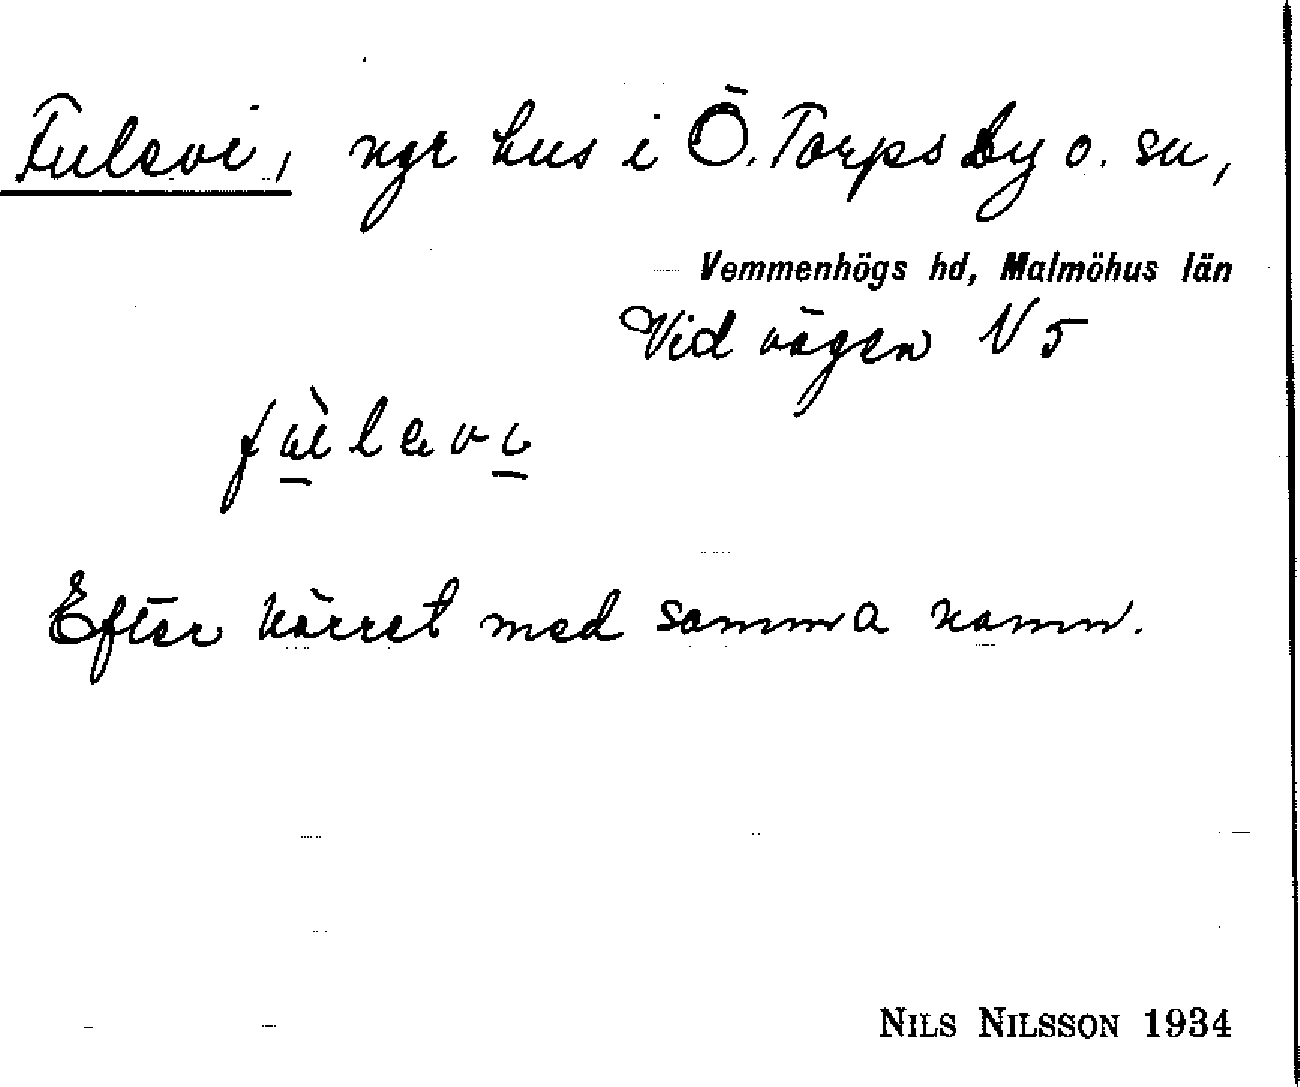 Fulevi, ngr hus i Ö. Torps by o. sn,
Vemmenhögs hd, Malmöhus län
Vid vägen N 5
Efter kärret med samma namn.
NILS NILSSON 1934